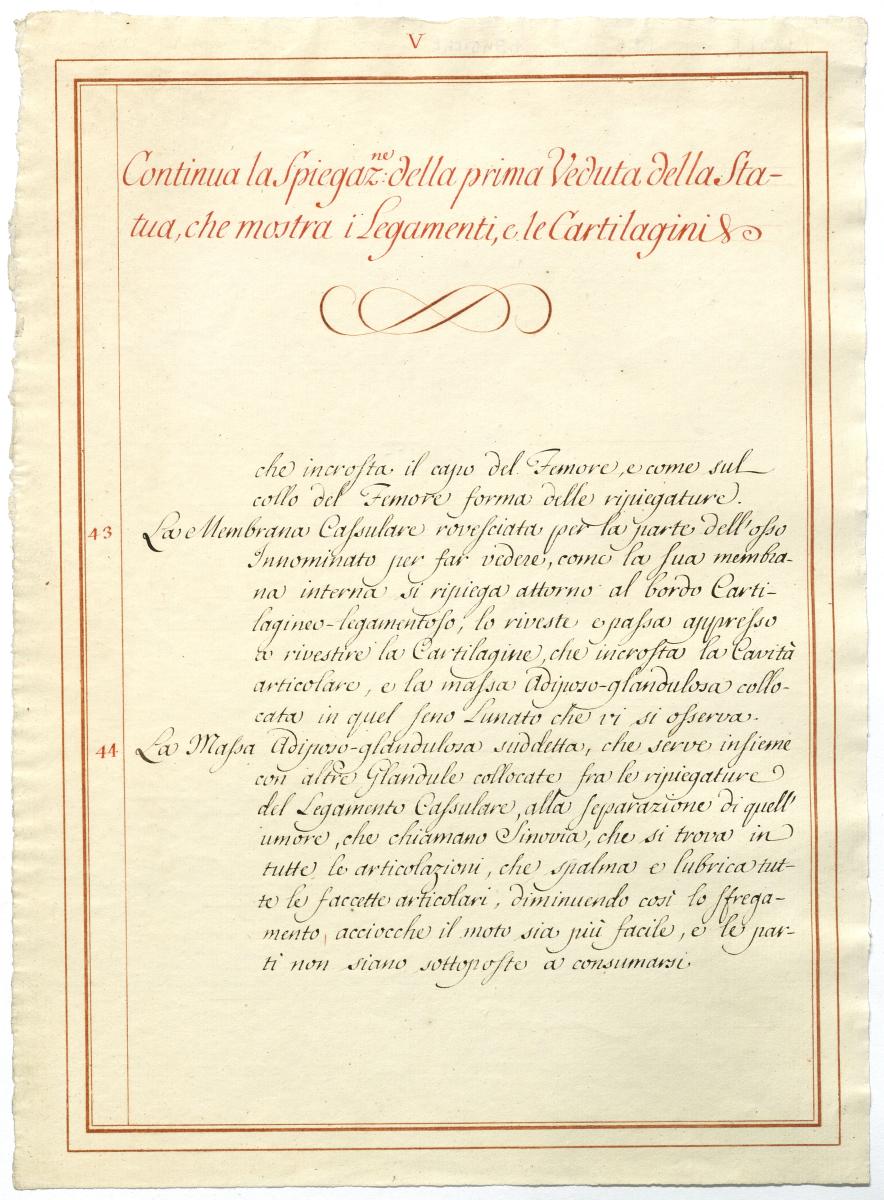 V
Continua la Spiegaz.ne della prima Veduta della Sta-
tua, che mostra i Legamenti, e le Cartilagini &
che incrosta il capo del Femore, e come sul
collo del Femore forma delle ripiegature.
43 La Membrana Cassulare rovesciata per la parte dell'osso
Innominato per far vedere, come la sua membra-
na interna si ripiega attorno al bordo Carti-
lagineo-legamentoso, lo riveste e passa appresso
a rivestire la Cartilagine, che incrosta la Cavità
articolare, e la massa Adiposo-glandulosa collo-
cata in quel seno Lunato che vi si osserva.
44 La Massa Adiposo-glandulosa suddetta, che serve insieme
con altre Glandule collocate fra le ripiegature
del Legamento Cassulare, alla separazione di quell'
umore, che chiamano Sinovia, che si trova in
tutte le articolazioni, che spalma e lubrica tut-
te le faccette articolari, diminuendo così lo sfrega-
mento, acciocche il moto sia più facile, e le par-
ti non siano sottoposte a consumarsi